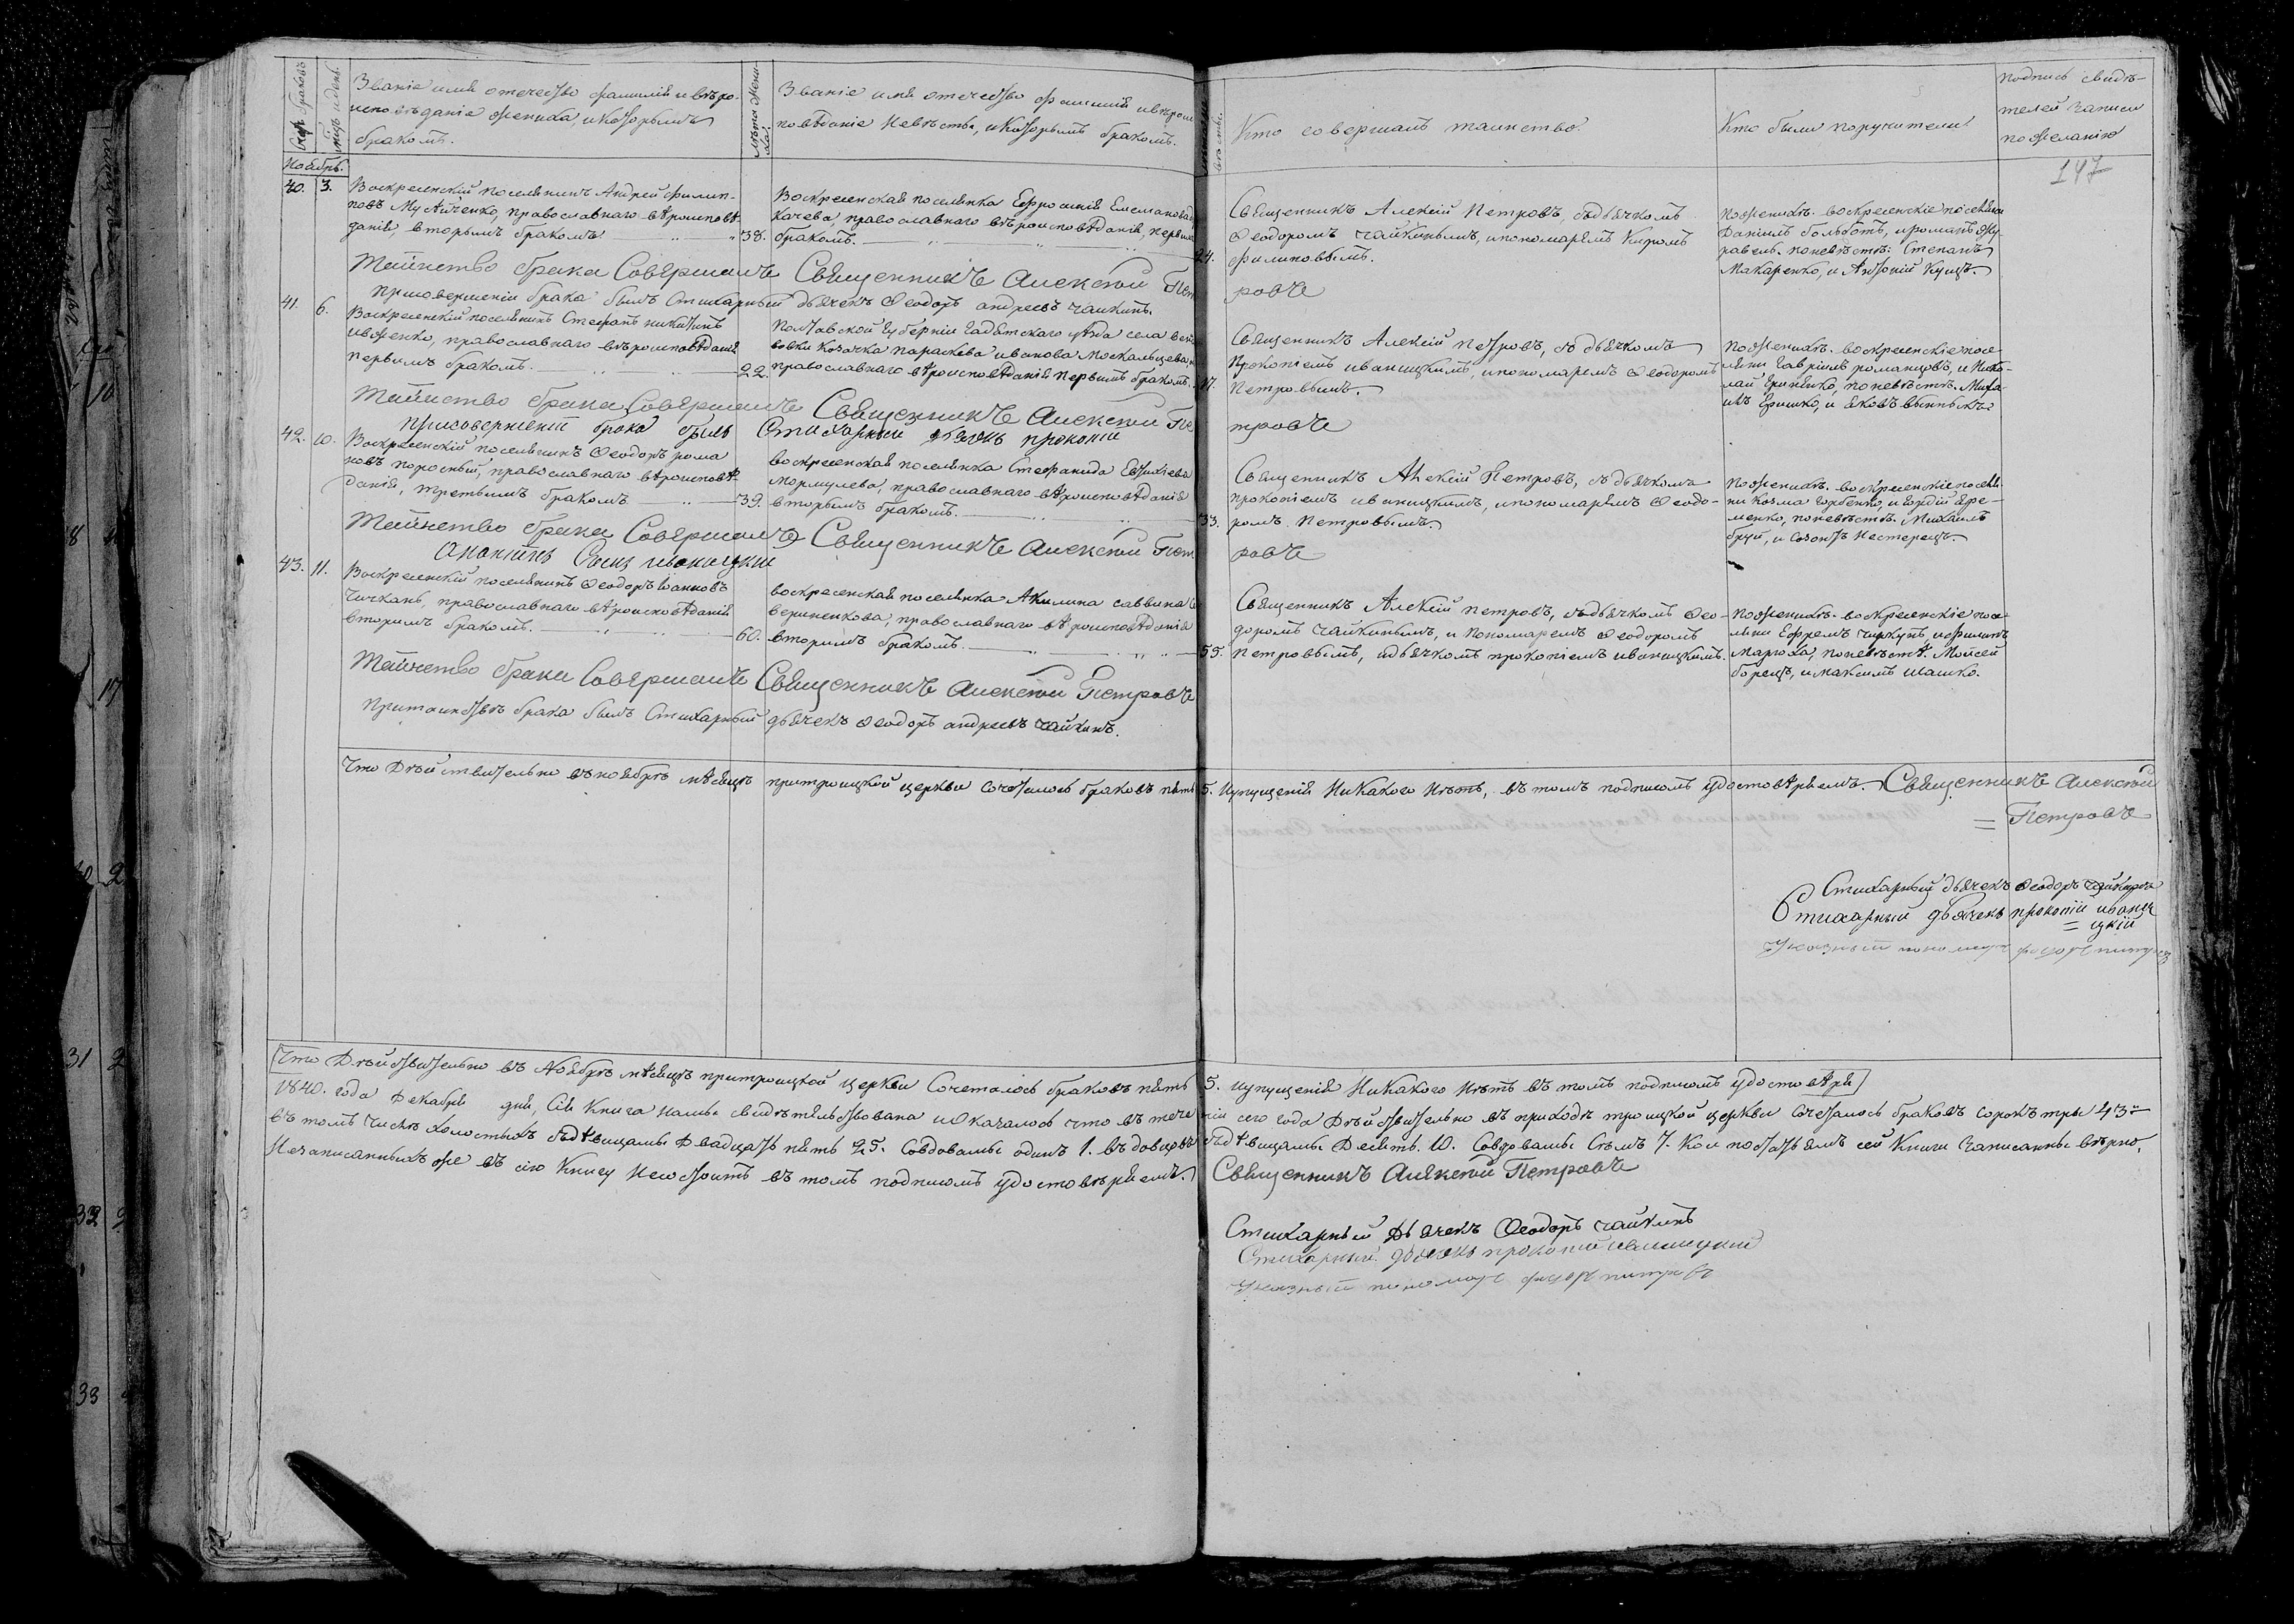 Звание имя отечество фамилия и вѣро-
исповѣдание жениха и которымъ
бракомъ.
Звание имя отечество фамилия и вѣроис
поведание невѣсты, и которымъ бракомъ.
Кто совершалъ таинство.
Кто были поручители
подпись свидѣ-
телей записи
по желанію
147
Ноябрь.
40. 3.
Воскресенский поселянинъ Андрей Филип-
повъ православнаго вѣроисповѣ-
данія, вторымъ бракомъ.
38.
Воскресенская поселянка Ефросинія
православнаго вѣроисповѣданія, первымъ
бракомъ.
24.
Священникъ Алексій Петровъ, съ дьячкомъ
Ѳеодоромъ Чайкинымъ, и пономарёмъ Киромъ
Филиповымъ.
По женихѣ воскресенские поселяни
Даніилъ и романъ Жу-
равель. по невѣстѣ: Степанъ
Макаренко, и Антоній Куцъ.
Таинство брака Совершалъ Священникъ Алексій Пет
ровъ
При совершеніи брака былъ Стихарный дьячекъ Ѳеодоръ андреевъ чайкинъ.
41. 6.
Воскресенский поселянинъ Стефанъ никитинъ
Ивженко, православнаго вѣроисповѣданія
первымъ бракомъ.
22.
Полтавской губерніи Гадятскаго уѣзда села
козачка параскева иванова Москальцева,
православнаго вѣроисповѣданія первымъ бракомъ.
17.
Священникъ Алексій Петровъ, съ дьячкомъ
Прокопіемъ иваницкимъ, и пономаремъ Ѳеодоромъ
Петровымъ.
По женихѣ. воскресенскіе посе-
ляни Гавріилъ романцовъ, и Нико-
лай Гриненко, по невѣстѣ. Миха-
илъ Гришко, и Яковъ
Таинство брака Совершалъ Священникъ Алексій Пе
тровъ
При совершеніи брака былъ Стихарный дьячекъ прокопій
42. 10.
Воскресенскій поселянинъ Ѳеодоръ рома
новъ поросный, православнаго вѣроисповѣ
данія, третьимъ бракомъ
39.
воскресенская поселянка Стефанида
православнаго вѣроисповѣданія
вторымъ бракомъ.
33.
Священникъ Алексій Петровъ, съ дьячкомъ
прокопіемъ иваницкимъ, и пономарёмъ Ѳеодо-
ромъ Петровымъ.
По женихѣ. воскресенскіе поселя-
ни Козма Горбенко, и Гордій Яре-
менко, по невѣстѣ. Михаилъ
и Созонтъ Нестерецъ.
Таинство брака Совершалъ Священникъ Алексій Пет
ровъ
43. 11.
Воскресенскій поселянинъ Ѳеодоръ Іоанновъ
Чичканъ, православнаго вѣроисповѣданія
вторимъ бракомъ.
60.
воскресенская поселянка Акилина саввина
православнаго вѣроисповѣданія
вторимъ бракомъ.
55.
Священникъ Алексій Петровъ, съ дьячкомъ Ѳео-
доромъ Чайкинымъ, и пономаремъ Ѳеодоромъ
Петровымъ, и дьячкомъ прокопіемъ иваницкимъ.
По женихѣ. воскресенскіе посе-
ляни Ефремъ и Филипъ
по невѣстѣ. Моисей
борецъ, и максимъ Ивашко.
Таинство брака Совершалъ Священникъ Алексій Петровъ
При таинствѣ брака былъ Стихарный дьячекъ Ѳеодоръ андреевъ чайкинъ.
Что Дѣйствительно въ ноябрѣ мѣсяцѣ при троицкой церкви сочеталось браковъ пять 5. и упущенія Никакого нѣтъ, въ томъ подписомъ удостовѣряемъ. Священникъ Алексій
Петровъ
Стихарный дьячекъ Ѳеодоръ чайкинъ
Стихарный дьячекъ прокопій ивани
цкій
Указный пономарь
Что Дѣйствительно въ Ноябрѣ мѣсяцѣ при троицкой церкви Сочеталось браковъ пять 5. и упущенія Никакого нѣтъ въ томъ подписомъ удостовѣря
1840. года Декабря дня, Сія Книга нами свидѣтельствована и Оказалось что въ тече ніи сего года Дѣйствительно въ приходѣ троицкой церкви сочеталось браковъ сорокъ три 43.
въ томъ числѣ холостыхъ съ дѣвицами Двадцать пять 25. Совдовами одинъ 1. вдовцовъ съ дѣвицами Десять. 10. Совдовами Семъ 7. Кои по статьямъ сей Книги Записанны вѣрно,
Незаписанныхъ же въ сію Книгу несостоитъ въ томъ подписомъ удостовѣряемъ. Священникъ Алексій Петровъ
Стихарный Дьячекъ Ѳеодоръ чайкинъ
Стихарный дьячекъ прокопій иваницкий
Указный пономарь